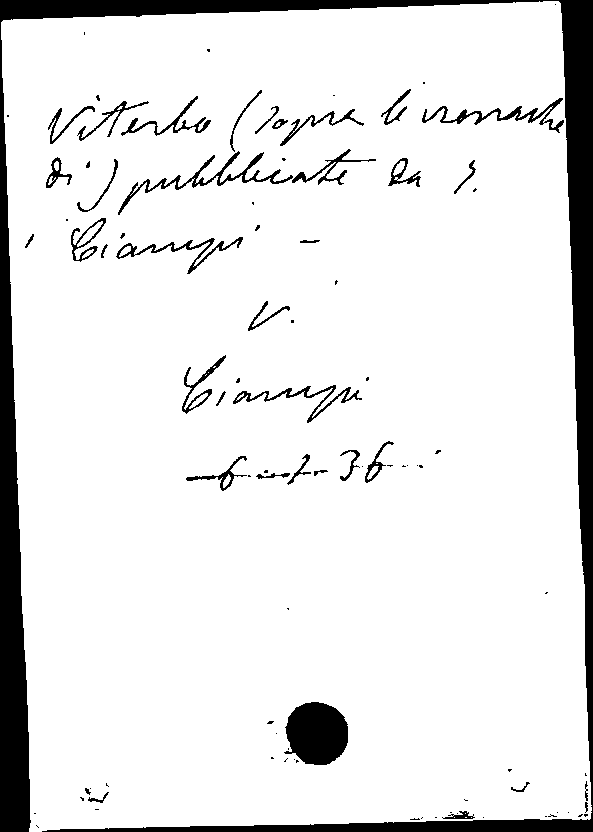 Viterbo (sopra le cronache
di) pubblicate da I.
Ciampi -
V.
Ciampi
36